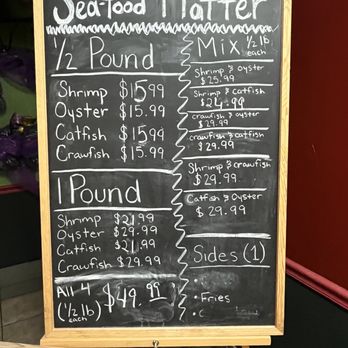 Seafood Platter
1/2 Pound
Shrimp $15.99
Oyster $15.99
Catfish $15.99
Crawfish $15.99
1 Pound
Shrimp $21.99
Oyster $29.99
Catfish $21.99
Crawfish $29.99
All 4 $49.99
(1/2 lb) each
Mix 1/2 lb each
Shrimp & Oyster
$25.99
Shrimp & Catfish
$24.99
Crawfish & Oyster
$29.99
Crawfish & Catfish
$29.99
Shrimp & Crawfish
$29.99
Catfish & Oyster
$29.99
Sides (1)
• Fries